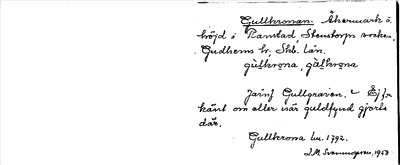 Gullkronan. Åkermark å
höjd i Ramstad, Stenstorps socken,
Gudhems hd, Skb. län.
gùlkrona, gàlkrona
Jainf Gullgraven. Ej
känt om eller när guldfynd gjorts
där.
Gullkrona hm. 1792.
1953